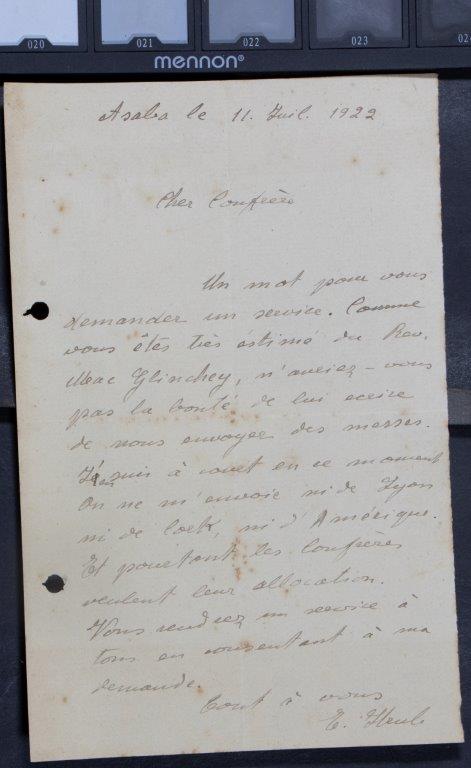 020 021 022 023
mennon®
Asaba le 11. Juil. 1922
Cher Confrère
Un mot pour vous
demander un service. Comme
vous êtes très estimé du Rev.
Mac Glinchey, n'auriez-vous
pas la bonté de lui ecrire
de nous envoyer des messes.
suis à court en ce moment
On ne m'envoie ni de Lyon
ni de Cork, ni d'Amérique.
Et pourtant les Confrères
veulent leur allocation.
Vous rendrez un service à
tous en consentant à ma
demande.
Tout à vous
E.